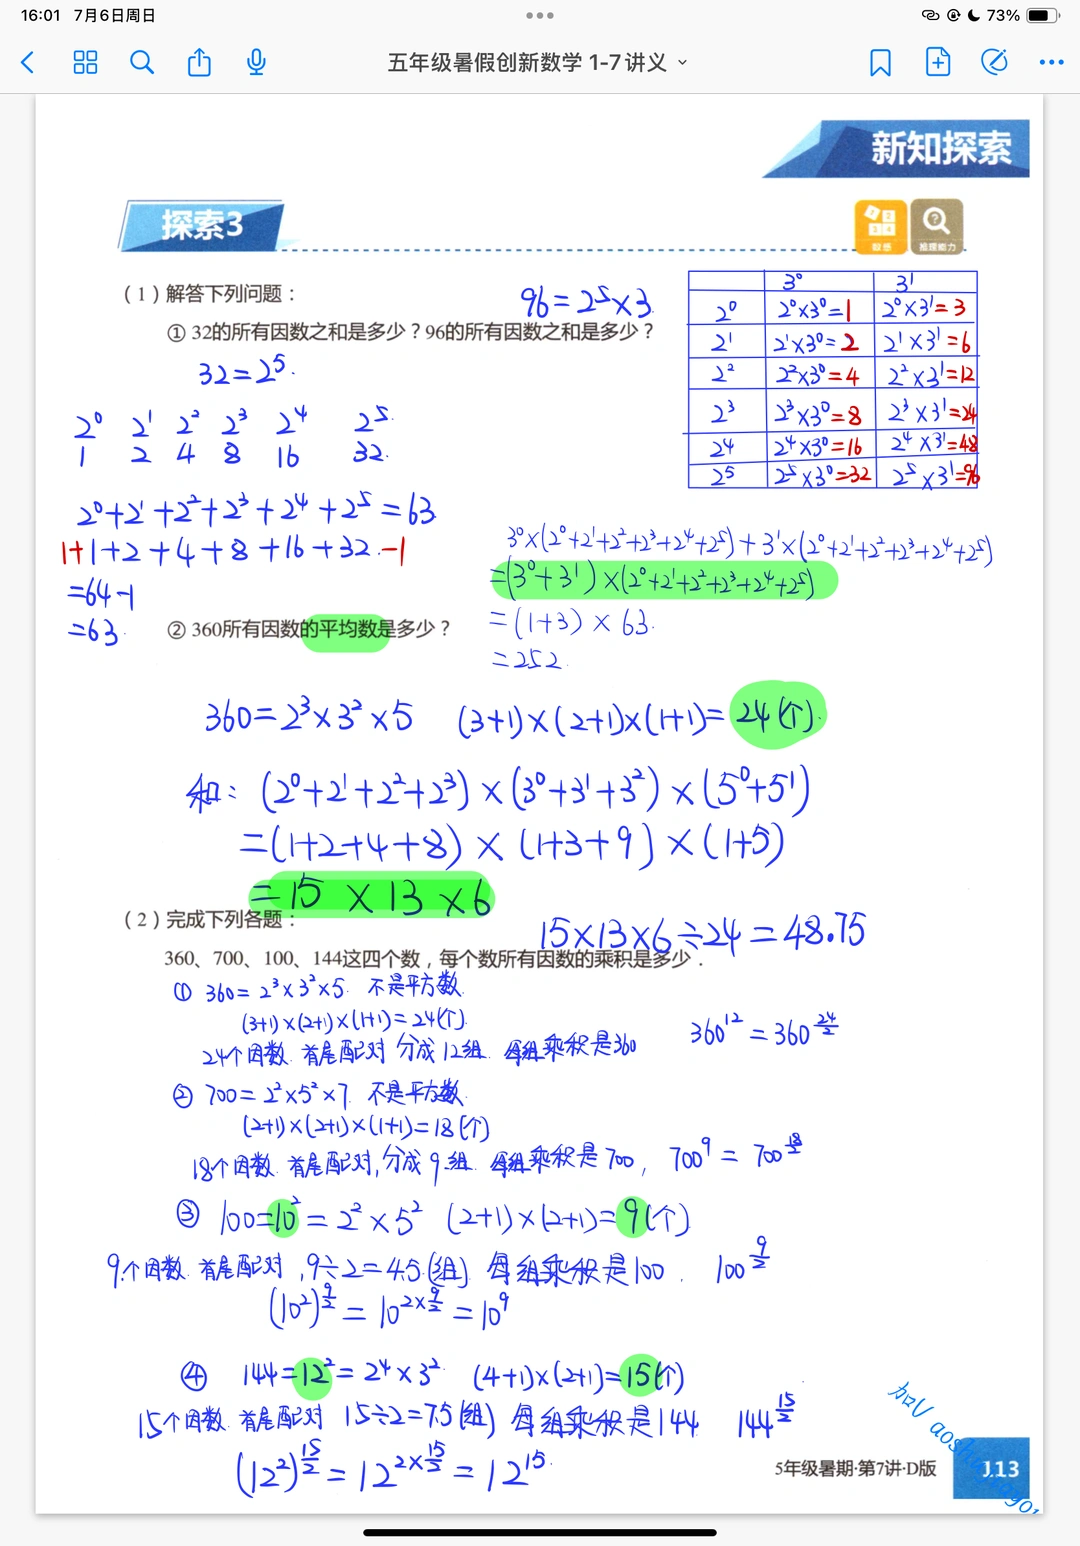 16:01 7月6日周日
73%
五年级暑假创新数学 1-7 讲义
新知探索
探索3
数感
推理能力
（1）解答下列问题：
96=2⁵×3
① 32的所有因数之和是多少？96的所有因数之和是多少？
32=2⁵.
3⁰ 3¹
2⁰ 2⁰×3⁰=1 2⁰×3¹=3
2¹ 2¹×3⁰=2 2¹×3¹=6
2² 2²×3⁰=4 2²×3¹=12
2³ 2³×3⁰=8 2³×3¹=24
2⁴ 2⁴×3⁰=16 2⁴×3¹=48
2⁵ 2⁵×3⁰=32 2⁵×3¹=96
2⁰ 2¹ 2² 2³ 2⁴ 2⁵
1 2 4 8 16 32
2⁰+2¹+2²+2³+2⁴+2⁵=63
1+1+2+4+8+16+32-1
=64-1
=63
3⁰×(2⁰+2¹+2²+2³+2⁴+2⁵)+3¹×(2⁰+2¹+2²+2³+2⁴+2⁵)
=(3⁰+3¹)×(2⁰+2¹+2²+2³+2⁴+2⁵)
=(1+3)×63.
=252.
② 360所有因数的平均数是多少？
360=2³×3²×5 (3+1)×(2+1)×(1+1)=24(个).
和: (2⁰+2¹+2²+2³)×(3⁰+3¹+3²)×(5⁰+5¹)
=(1+2+4+8)×(1+3+9)×(1+5)
=15×13×6
15×13×6÷24=48.75
（2）完成下列各题：
360、700、100、144这四个数，每个数所有因数的乘积是多少．
① 360=2³×3²×5. 不是平方数.
(3+1)×(2+1)×(1+1)=24(个).
24个因数. 首尾配对 分成12组. 每组乘积是360
360¹²=360^(24/2)
② 700=2²×5²×7. 不是平方数.
(2+1)×(2+1)×(1+1)=18(个)
18个因数. 首尾配对,分成9组. 每组乘积是700, 700⁹=700^(18/2)
③ 100=10²=2²×5² (2+1)×(2+1)=9(个)
9个因数. 首尾配对, 9÷2=4.5(组). 每组乘积是100. 100^(9/2)
(10²)^(9/2)=10^(2×9/2)=10⁹
④ 144=12²=2⁴×3². (4+1)×(2+1)=15(个)
15个因数. 首尾配对 15÷2=7.5(组) 每组乘积是144. 144^(15/2)
(12²)^(15/2)=12^(2×15/2)=12¹⁵.
5年级暑期·第7讲·D版
113